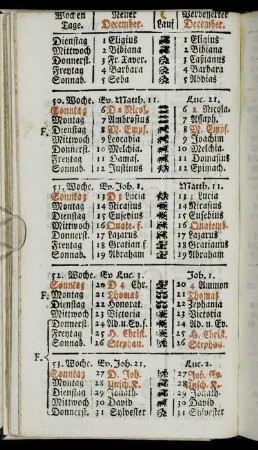 Wochen Neuer Verbesserter
Tage. December. Lauf December.
Dienstag 1 Eligius 1 Eligius
Mittwoch 2 Bibiana 2 Bibiana
Donnerst. 3 Fr. Xaver. 3 Caßianus
Freytag 4 Barbara 4 Barbara
Sonnab. 5 Saba 5 Abdias
50. Woche. Ev. Matth. 11. Luc. 21.
Sonntag 6 D 2 Nicol. 6 2 Nicola.
Montag 7 Ambrosius 7 Assaph.
F. Dienstag 8 M. Empf. 8 M. Empf.
Mittwoch 9 Leocadia 9 Joachim
Donnerst. 10 Melchia. 10 Melchia.
Freytag 11 Damas. 11 Damasius
Sonnab. 12 Justinus 12 Epimach.
51. Woche. Ev. Joh. 1. Matth. 11.
Sonntag 13 D 3 Lucia 13 3 Lucia
Montag 14 Nicasius 14 Nicasius
Dienstag 15 Eusebius 15 Eusebius
Mittwoch 16 Quate. f. 16 Quatemb.
Donnerst. 17 Lazarus 17 Lazarus
Freytag 18 Gratian f 18 Gratianus
Sonnab. 19 Abraham 19 Abraham
52. Woche. Ev. Luc. 3. Joh. 1.
Sonntag 20 D 4 Chr. 20 4 Ammon
F. Montag 21 Thomas 21 Thomas
Dienstag 22 Honorat 22 Zephania
Mittwoch 23 Victoria 23 Victoria
Donnerst. 24 Ad. u. Ev. f. 24 Ad. u. Ev.
Freytag 25 H. Christ. 25 H. Christ.
Sonnab. 26 Stephan. 26 Stephan.
F.
53. Woche. Ev. Joh. 21. Luc. 2.
Sonntag 27 D. Joh. 27 Joh. Ev.
Montag 28 Unsch. K. 28 Unsch. K.
Dienstag 29 Jonath. 29 Jonath.
Mittwoch 30 David 30 David
Donnerst. 31 Sylvester 31 Sylvester